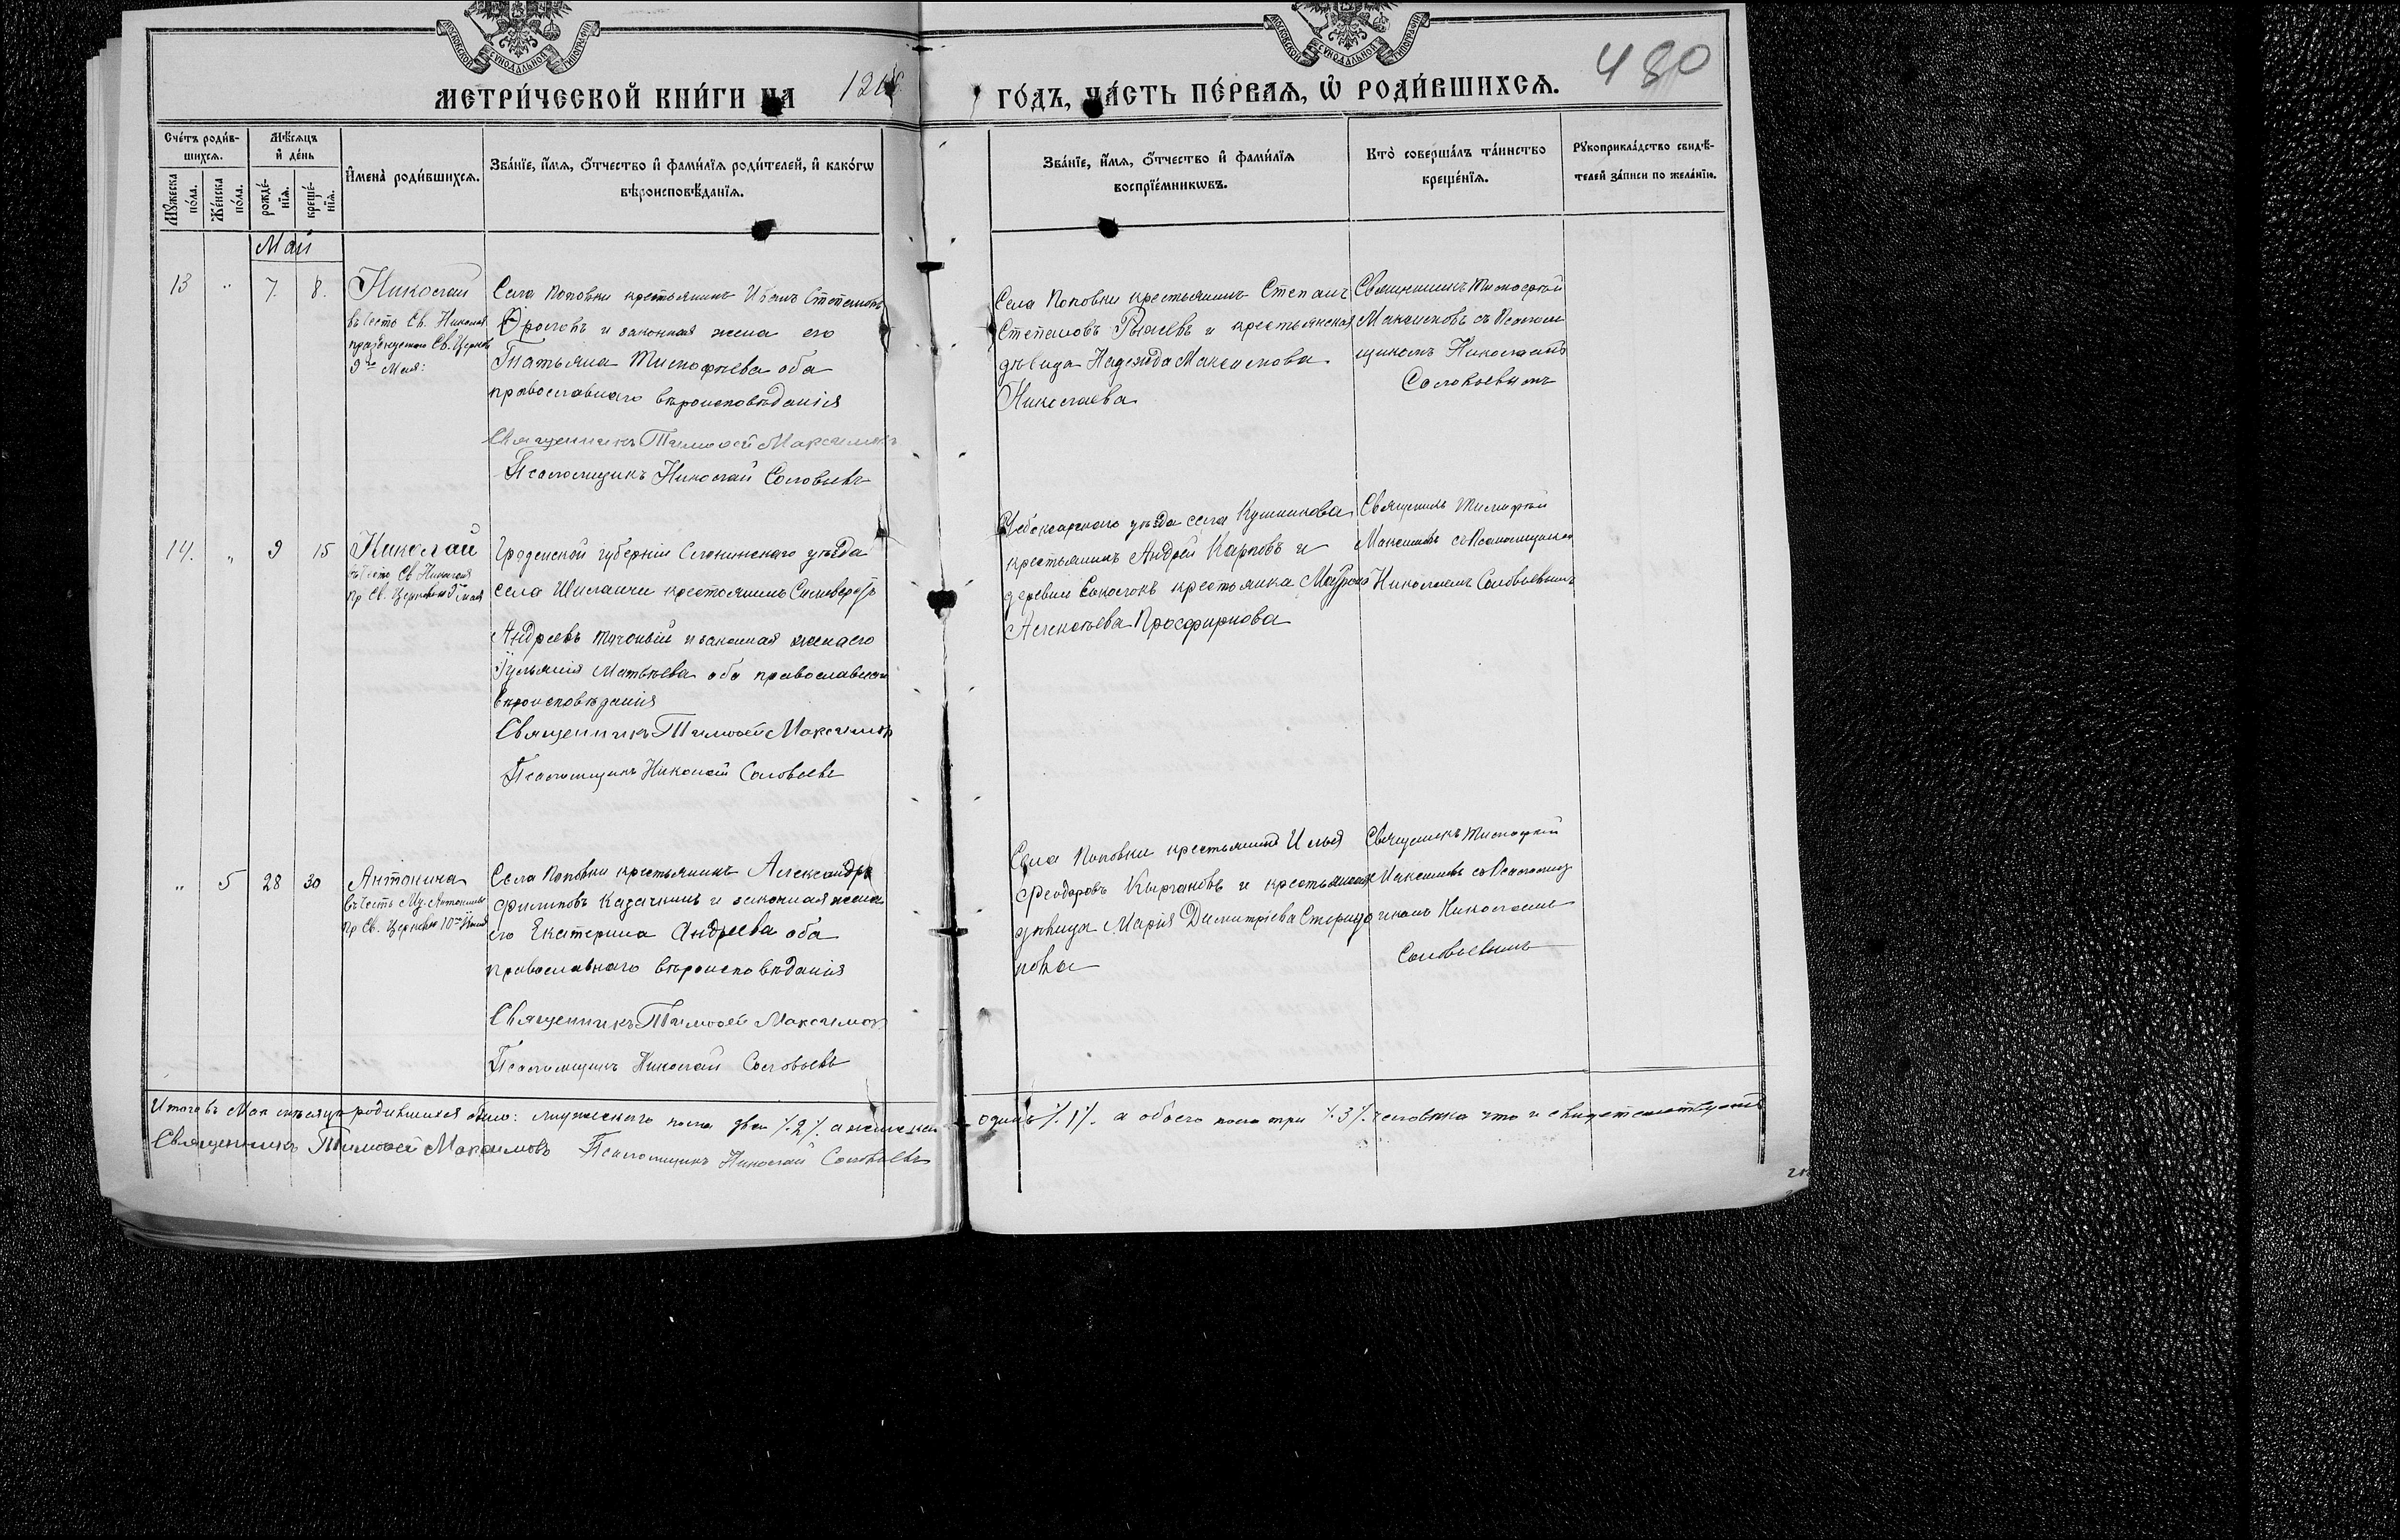 МОСКОВСКОЙ СѴНОДАЛЬНОЙ ТИПОГРАФІИ
МОСКОВСКОЙ СѴНОДАЛЬНОЙ ТИПОГРАФІИ
480
МЕТРИ́ЧЕСКОЙ КНИ́ГИ НА
ГО́ДЪ, ЧА́СТЬ ПЕ́РВАѦ, Ѡ҆ РОДИ́ВШИХСѦ.
Сче́тъ роди́в-
шихсѧ.
Мѣ́сѧцъ
и҆ де́нь
Мꙋ́жеска
по́ла.
Же́нска
по́ла.
рожде́-
нїѧ.
креще́-
нїѧ.
И҆мена̀ роди́вшихсѧ.
Зва́нїе, и҆́мѧ, ѻ҆́тчество и҆ фами́лїѧ роди́телей, и҆ како́гѡ
вѣроисповѣ́данїѧ.
Зва́нїе, и҆́мѧ, ѻ҆́тчество и҆ фами́лїѧ
воспрїе́мникѡвъ.
Кто̀ соверша́лъ та́инство
креще́нїѧ.
Рꙋкоприкла́дство свидѣ́-
телей за́писи по жела́нїю.
Май
13 " 7. 8.
Николай
въ честь Св. Николая
празднуемаго Св. Церков
9го Мая:
Села Поповки крестьянинъ Иванъ Степановъ
Фроловъ и законная жена его
Татьяна Тимофеева оба
православнаго вѣроисповѣданія
Священникъ Тимоѳей Максимовъ
Псаломщикъ Николай Соловьевъ
Села Поповки крестьянинъ Степанъ
Степановъ и крестьянская
дѣвица Надежда Максимова
Николаева
Священникъ Тимофей
Максимовъ съ Псалом
щикомъ Николаемъ
Соловьевымъ
14. " 9 15
Николай
въ честь Св. Николая
пр. Св. Церковью 9го мая
Гродненской губерніи Слонимскаго уѣзда
села крестьянинъ
Андреевъ и законная жена его
Іуліанія Матвѣева оба православнаго
вѣроисповѣданія
Священникъ Тимоѳей Максимовъ
Псаломщикъ Николай Соловьевъ
Чебоксарскаго уѣзда села Кушникова
крестьянинъ Андрей Карповъ и
деревни крестьянка Матрона
Алексѣева Просфирнова
Священникъ Тимофей
Максимовъ съ Псаломщикомъ
Николаемъ Соловьевымъ
" 5 28 30
Антонина
въ честь Муч. Антонины
пр. Св. Церковью 10го Іюня
Села Поповки крестьянинъ Александръ
Филиповъ Казачкинъ и законная жена
его Екатерина Андреева оба
православнаго вѣроисповѣданія
Священникъ Тимоѳей Максимовъ
Псаломщикъ Николай Соловьевъ
Села Поповки крестьянинъ Илья
Феодоровъ Кыргановъ и крестьянская
дѣвица Марія Димитріева
нова
Священникъ Тимофей
Максимовъ съ Псаломщ
икомъ Николаемъ
Соловьевымъ
Итого въ Маѣ мѣсяцѣ родившихся было: мужескаго пола два /.2/. а женскаго одинъ /.1/. а обоего пола три /.3/. человѣка что и свидѣтельствуютъ
Священникъ Тимоѳей Максимовъ Псаломщикъ Николай Соловьевъ